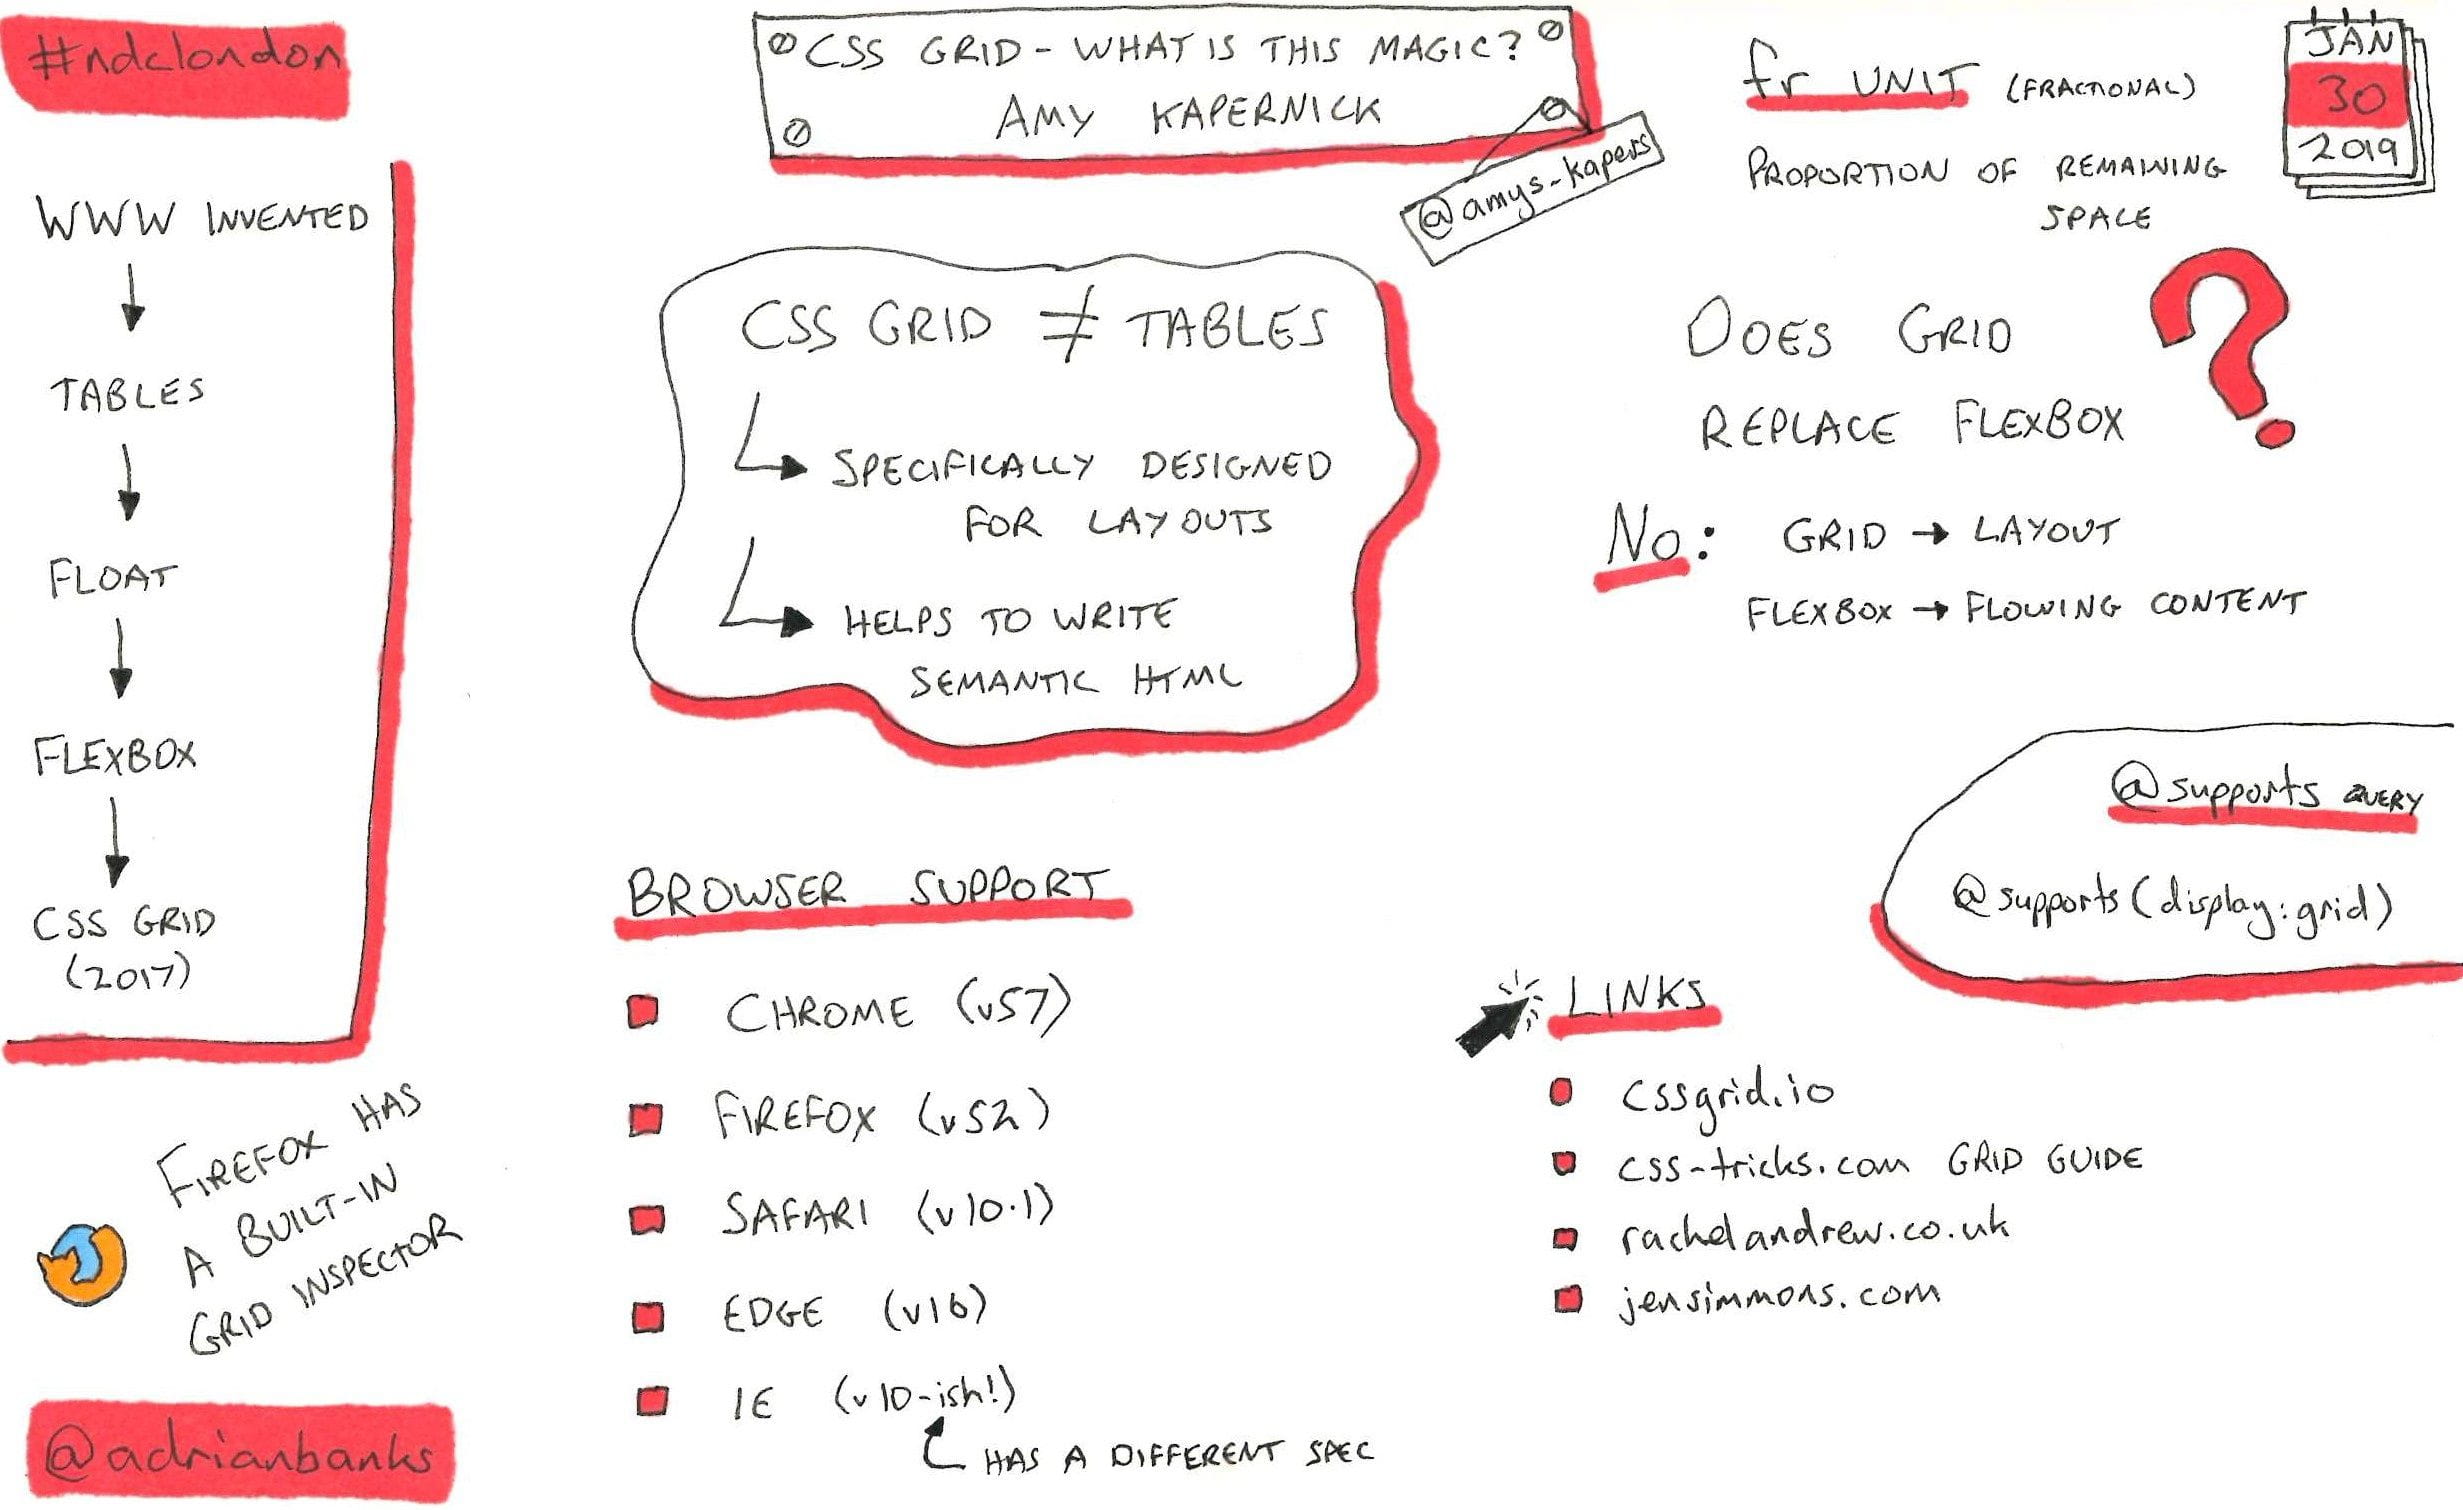 #ndclondon
CSS GRID - WHAT IS THIS MAGIC?
AMY KAPERNICK
@amys-kapers
JAN
30
2019
WWW INVENTED
TABLES
FLOAT
FLEXBOX
CSS GRID
(2017)
FIREFOX HAS
A BUILT-IN
GRID INSPECTOR
@adrianbanks
CSS GRID ≠ TABLES
SPECIFICALLY DESIGNED
FOR LAYOUTS
HELPS TO WRITE
SEMANTIC HTML
BROWSER SUPPORT
CHROME (v57)
FIREFOX (v52)
SAFARI (v10.1)
EDGE (v16)
IE (v10-ish!)
HAS A DIFFERENT SPEC
fr UNIT (FRACTIONAL)
PROPORTION OF REMAINING
SPACE
DOES GRID
REPLACE FLEXBOX ?
NO: GRID → LAYOUT
FLEXBOX → FLOWING CONTENT
@supports QUERY
@supports (display: grid)
LINKS
cssgrid.io
css-tricks.com GRID GUIDE
rachelandrew.co.uk
jensimmons.com